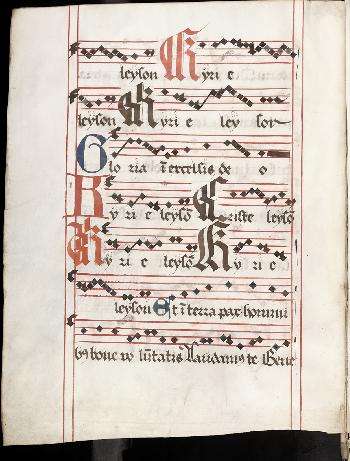 leyson Kyri e
leyson Kyri e ley son
Glo ria ī excelsis de o
Kyri e leysō Criste leysō
Kyri e leysō Kyri e
leyson Et ī terra pax homini
bꝰ bone vo lūtatis Laudamꝰ te Bene